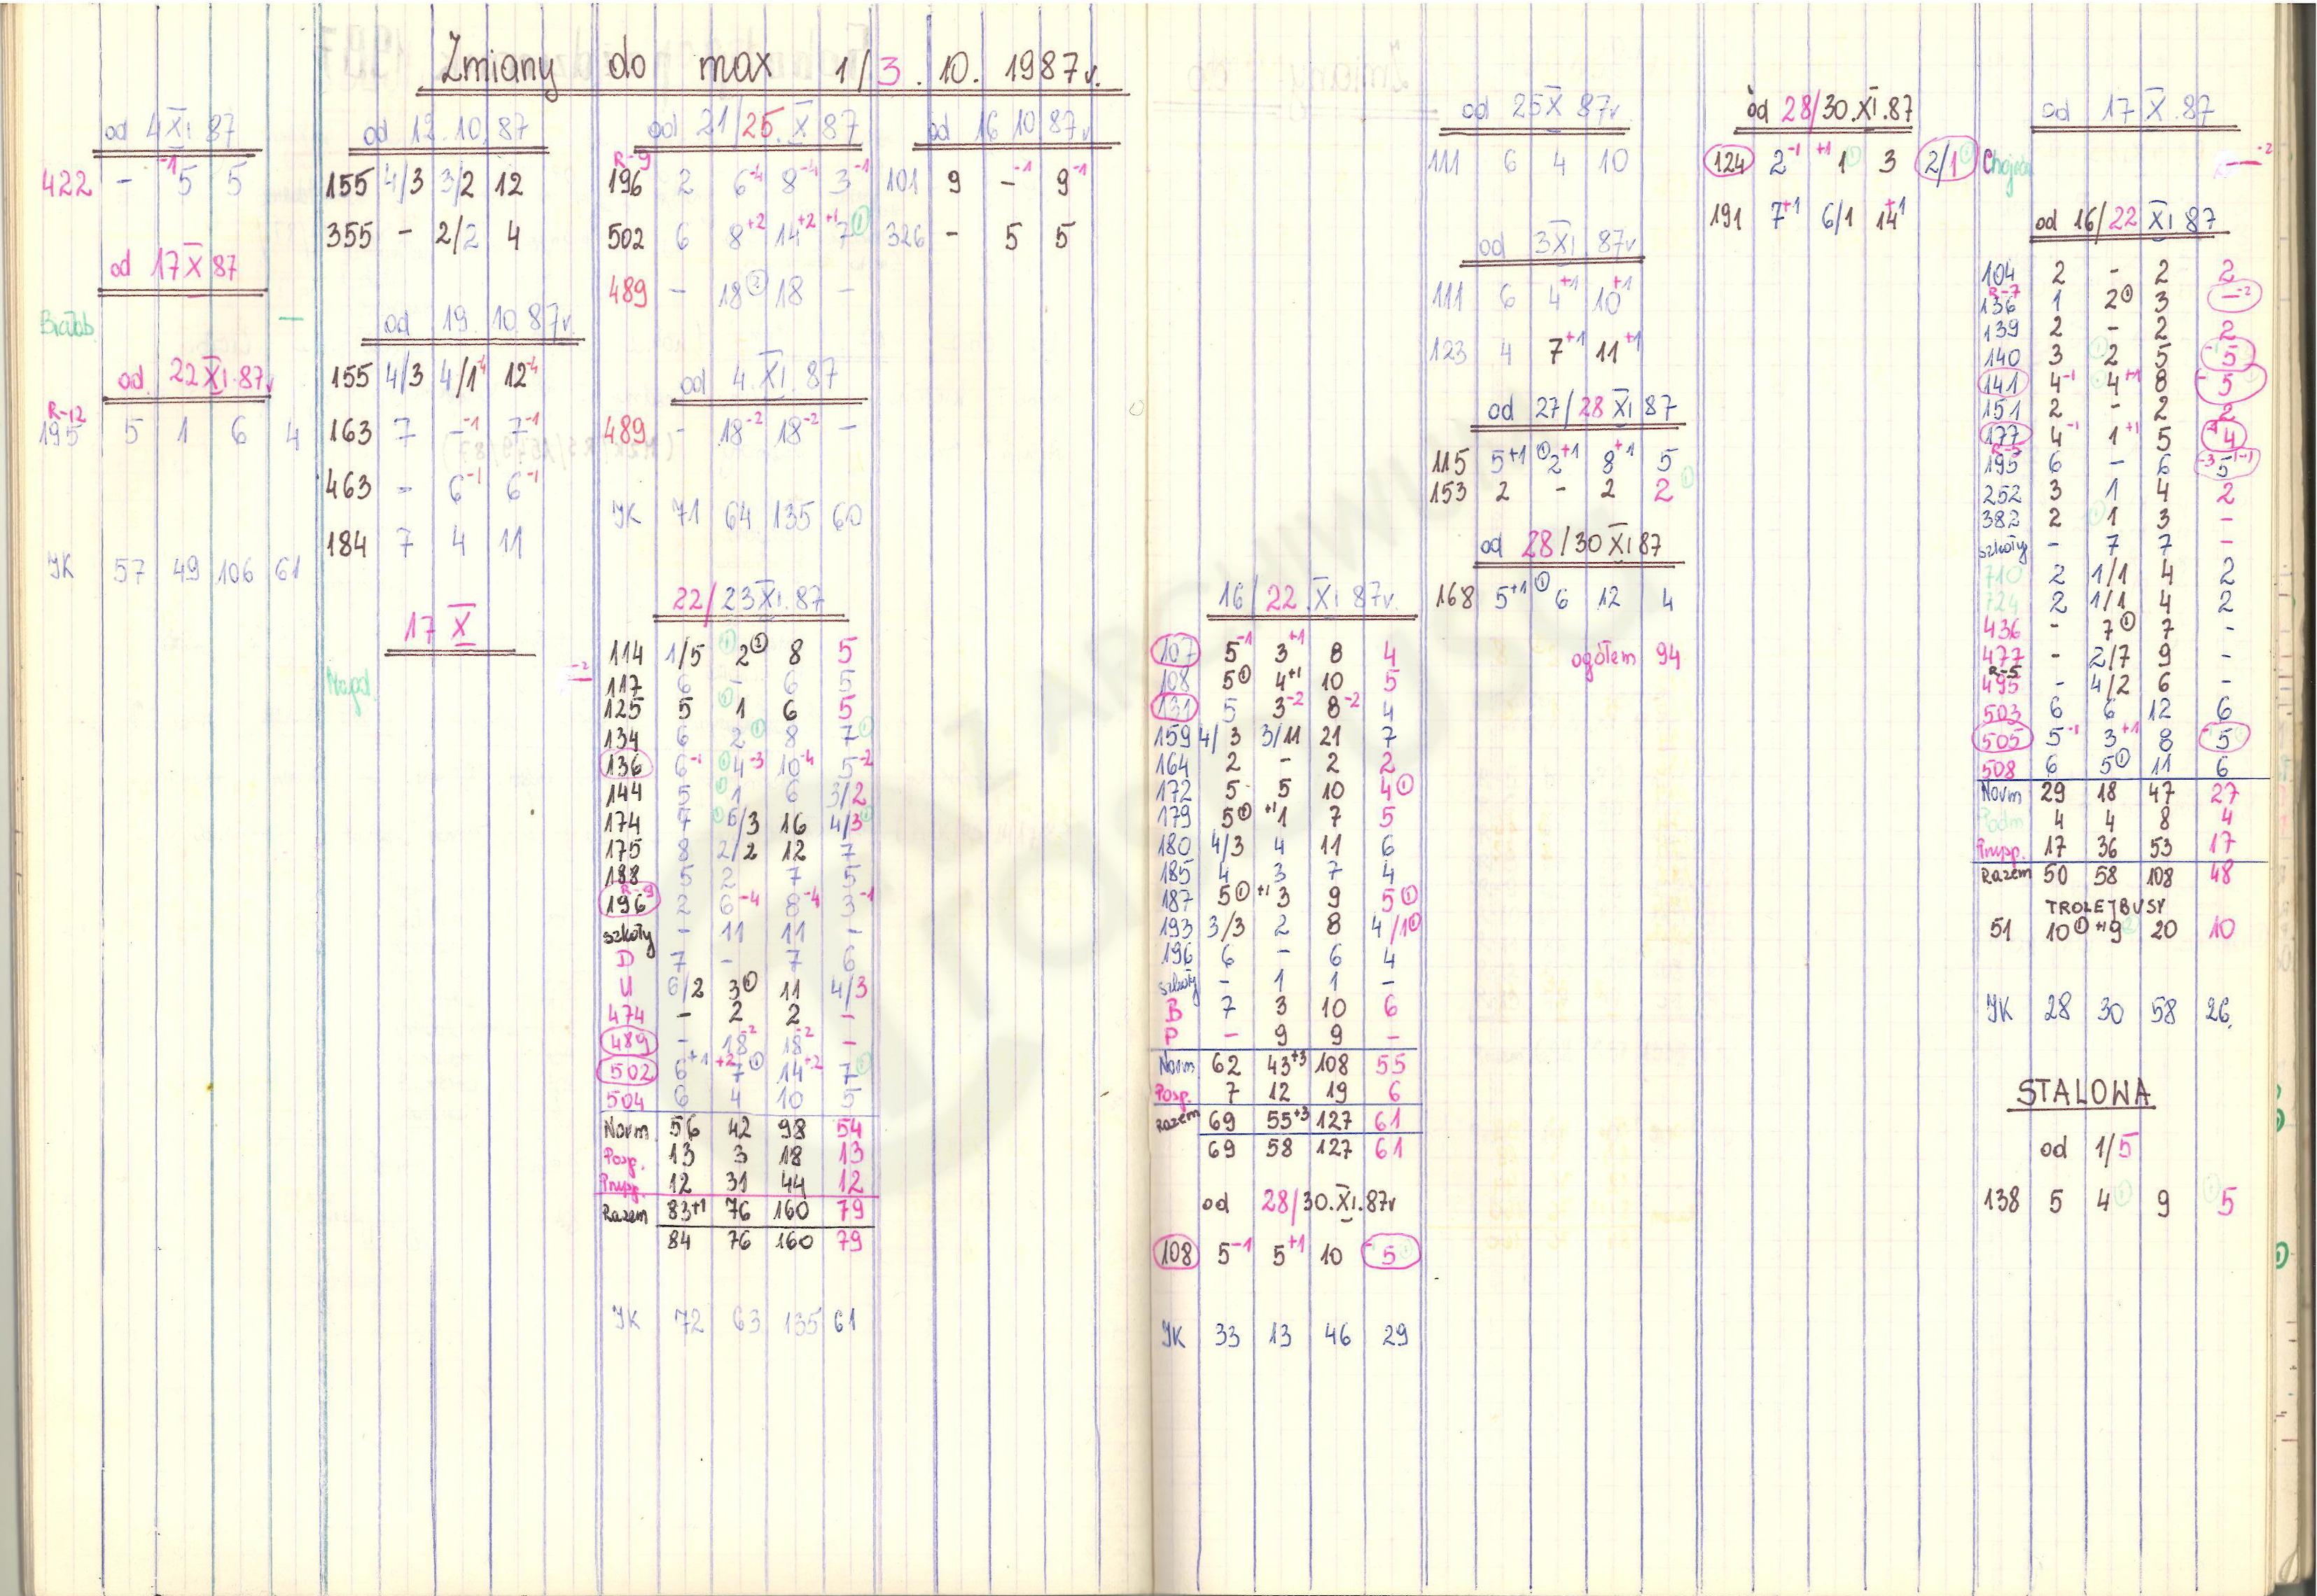 Zmiany do max 1/3.10.1987r.
od 4 XI 87
422 - -1 5 5
od 17 X 87
-
od 22 XI.87r
R-12
195 5 1 6 4
JK 57 49 106 61
od 12.10.87
155 4/3 3/2 12
355 - 2/2 4
od 19.10.87r.
155 4/3 4/1 12
163 7 - -1 7 -1
463 - 6 -1 6 -1
184 7 4 11
17 X
-2
od 21/25.X 87
R-9
196 2 6 -4 8 -4 3 -1
502 6 8 +2 14 +2 +1 7 ①
489 - 18 ② 18 -
od 4.XI.87
489 - 18 -2 18 -2 -
JK 71 64 135 60
22/23 XI.87
114 1/5 ① 2 ② 8 5
117 6 - 6 5
125 5 ① 1 6 5
134 6 2 ① 8 7 ①
136 6 -1 ① 4 -3 10 -4 5 -2
144 5 ① 1 6 3/2
174 7 ① 6/3 16 4/3 ①
175 8 2/2 12 7
188 5 2 7 5
R-9
196 2 6 -4 8 -4 3 -1
szkoły - 11 11 -
D 7 - 7 6
U 6/2 3 ① 11 4/3
474 - 2 2 -
489 - 18 -2 18 -2 -
502 6 +1 +2 7 ① 14 +2 7 ①
504 6 4 10 5
Norm 56 42 98 54
Posp. 13 3 18 13
Przysp. 12 31 44 12
Razem 83+1 76 160 79
84 76 160 79
JK 72 63 135 61
od 16 10 87r
101 9 - -1 9 -1
326 - 5 5
16/22.XI 87r.
107 5 -1 3 +1 8 4
108 5 ① 4 +1 10 5
131 5 3 -2 8 -2 4
159 4/3 3/11 21 7
164 2 - 2 2
172 5 5 10 4 ①
179 5 ① +1 1 7 5
180 4/3 4 11 6
185 4 3 7 4
187 5 ① +1 3 9 5 ①
193 3/3 2 8 4/1 ①
196 6 - 6 4
szkoły - 1 1 -
B 7 3 10 6
P - 9 9 -
Norm 62 43+3 108 55
Posp. 7 12 19 6
Razem 69 55+3 127 61
69 58 127 61
od 28/30.XI.87r
108 5 -1 5 +1 10 5
JK 33 13 46 29
od 25 X 87r
111 6 4 10
od 3 XI 87r
111 6 4 +1 10 +1
123 4 7 +1 11 +1
od 27/28 XI 87
115 5 +1 ① 2 +1 8 +1 5
153 2 - 2 2 ①
od 28/30 XI 87
168 5 +1 ① 6 12 4
ogółem 94
od 28/30.XI.87
124 2 -1 +1 1 ① 3 2/1 ①
191 7 +1 6/1 14 +1
od 17 X.87
-2
od 16/22 XI 87
104 2 - 2 2
R-7
136 1 2 ① 3 - -2
139 2 - 2 2
140 3 2 5 5
141 4 -1 4 +1 8 5
151 2 - 2 2
177 4 -1 1 +1 5 4
195 6 - 6 -3 5
252 3 1 4 2
382 2 1 3 -
szkoły - 7 7 -
710 2 1/1 4 2
724 2 1/1 4 2
436 - 7 ① 7 -
477 - 2/7 9 -
R-5
495 - 4/2 6 -
503 6 6 12 6
505 5 -1 3 +1 8 5
508 6 5 ① 11 6
Norm 29 18 47 27
Podm 4 4 8 4
Przysp. 17 36 53 17
Razem 50 58 108 48
TROLEJBUSY
51 10 ① +1 9 20 10
JK 28 30 58 26.
STALOWA
od 1/5
138 5 4 ① 9 ① 5